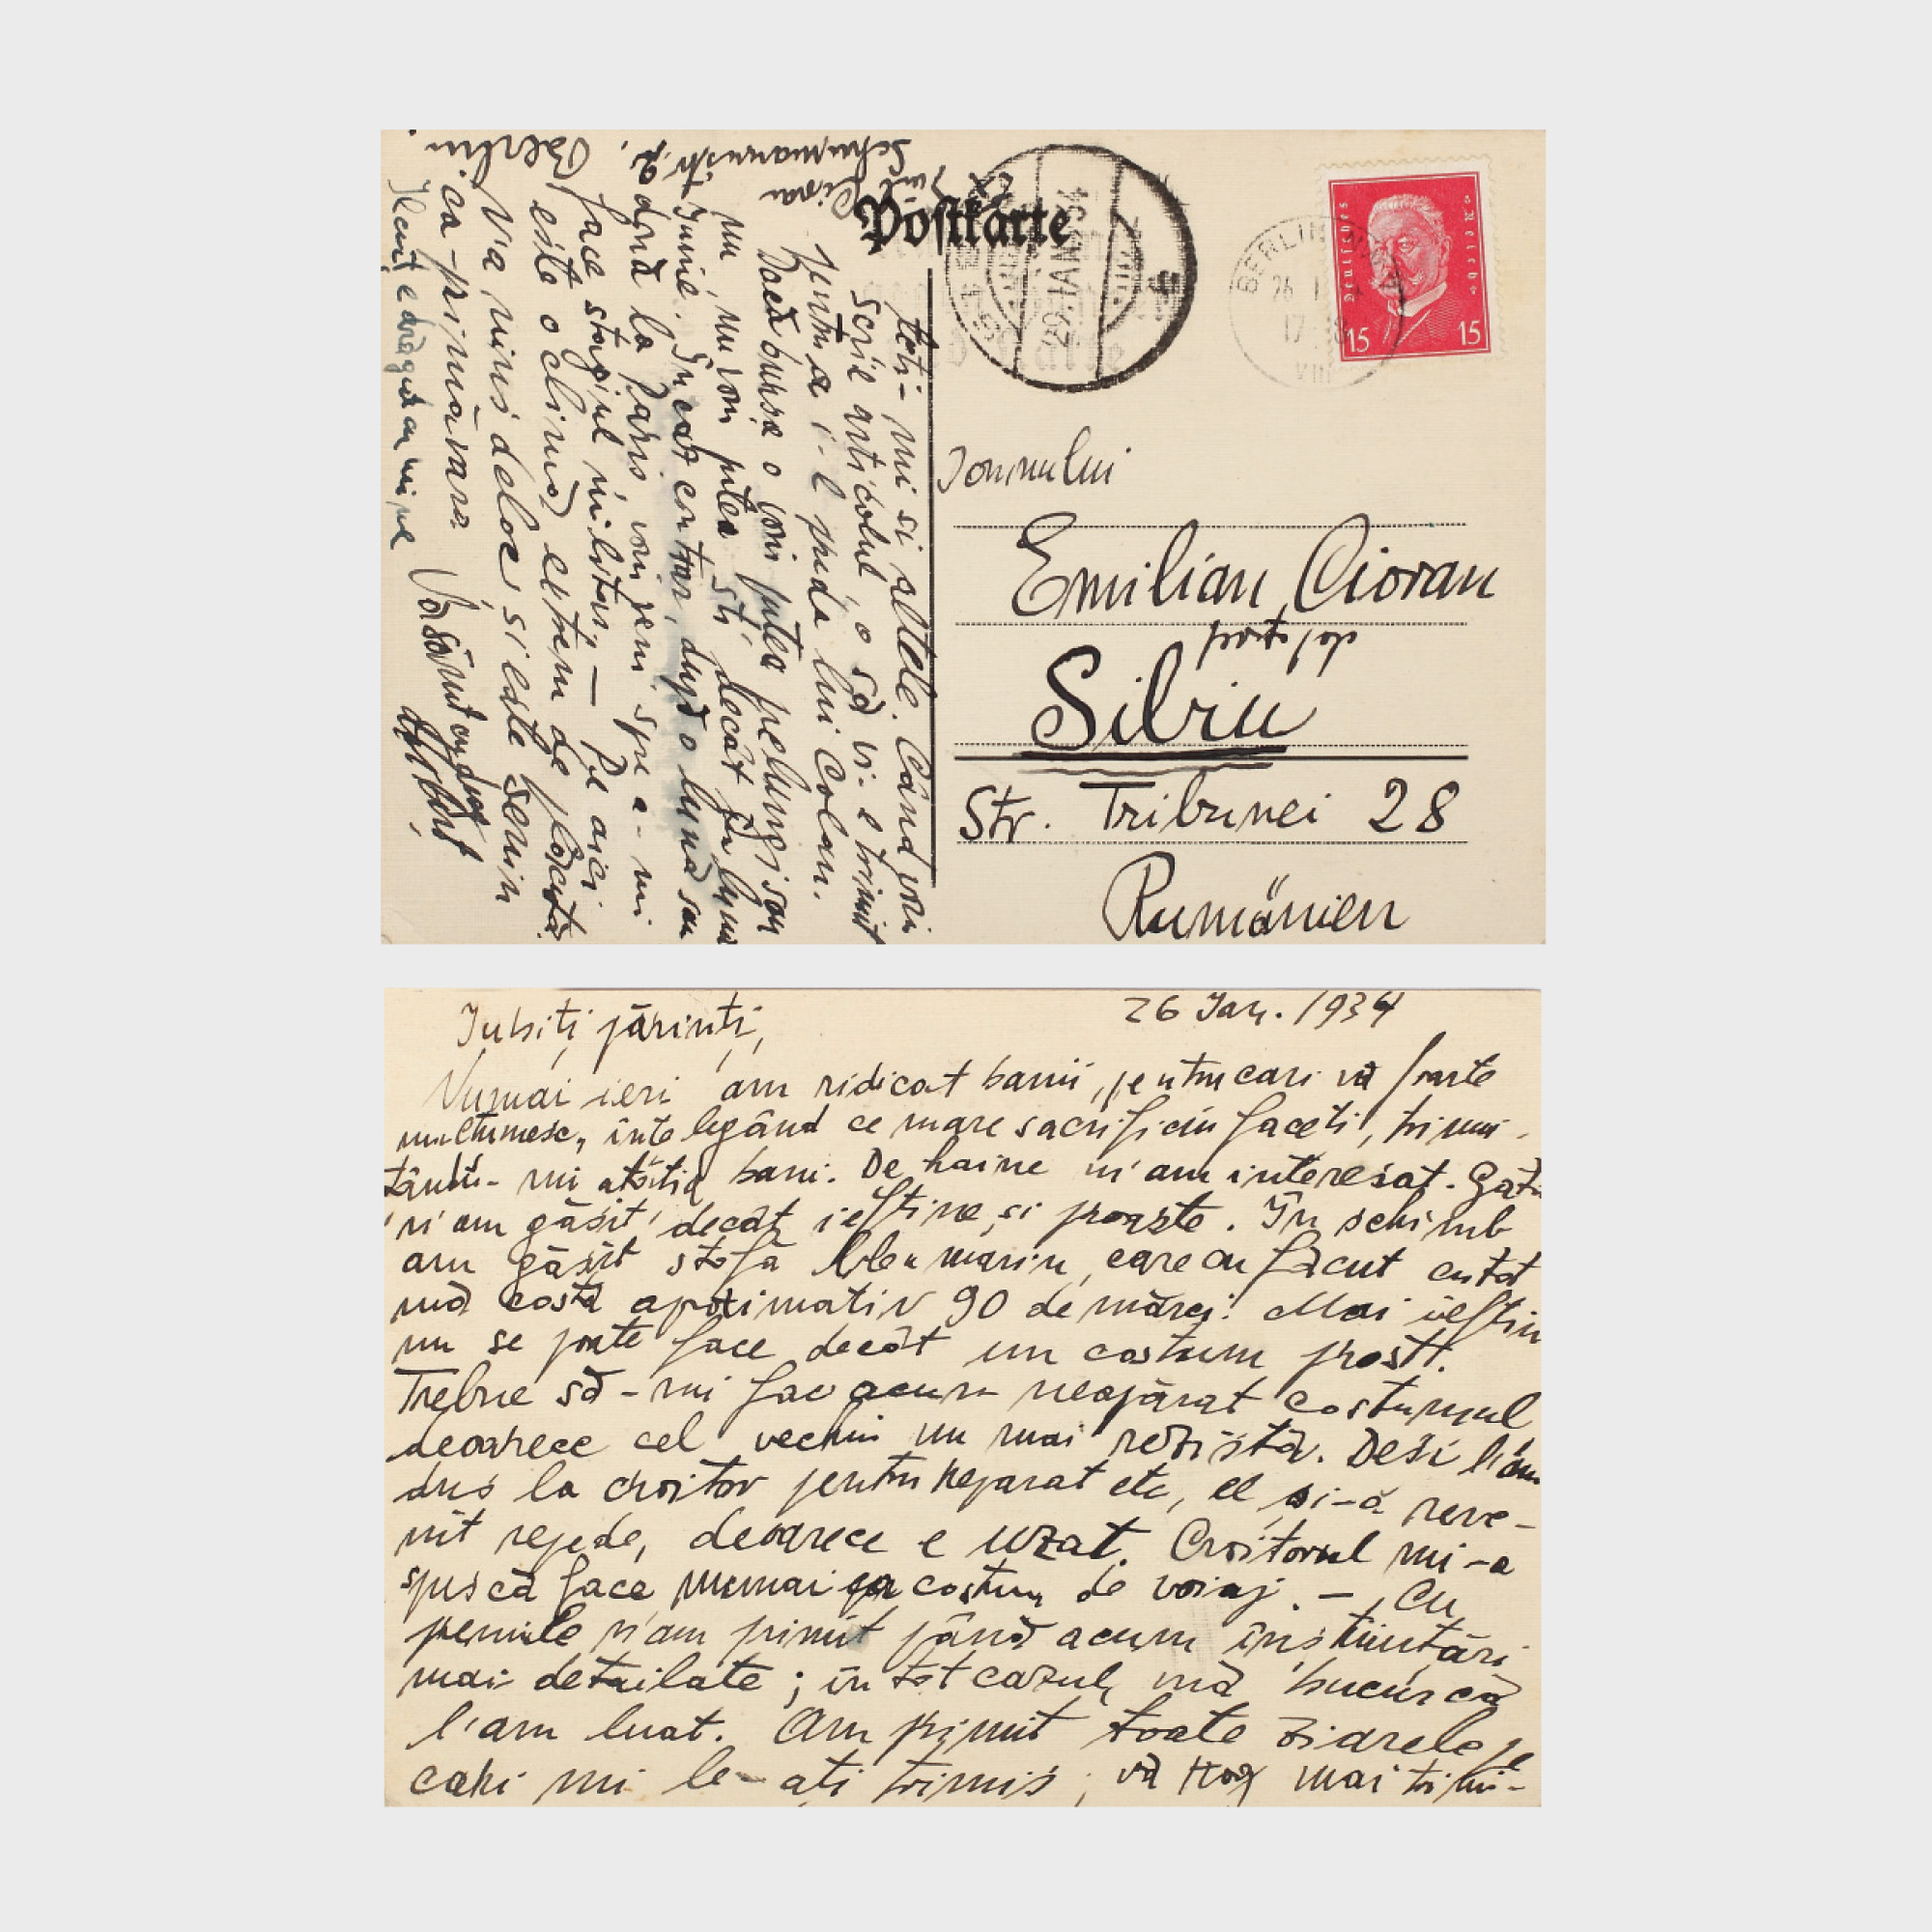 Postkarte
Deutsches Reich
15 15
BERLIN
26
17
VIII
SIBIU
29. IAN. 34
Domnului
Emilian Cioran
protopop
Sibiu
Str. Tribunei 28
Rumänien
teți-mi și altele. Când voi
scrie articolul, o să vi-l trimit
pentru a i-l preda lui Colan.
Dacă bursa o voi putea prelungi sau
nu, nu voi putea ști decât în luna
Iunie. În caz contrar, după o lună sau
două la Paris, voi veni spre a-mi
face stagiul militar, — Pe aici
este o climă extrem de plăcută.
N'a nins deloc și este senin
ca-primăvara.
Vă sărut cu drag
Cioran
Schumannstr. 2,
Berlin.
Iubiți părinți,
26 Jan. 1934
Numai ieri am ridicat banii, pentru cari vă foarte
mulțumesc, înțelegând ce mare sacrificiu faceți, trimi-
țându-mi atâția bani. De haine m'am interesat. Gata
n'am găsit decât ieftine și proaste. În schimb
am găsit stofă bleu marin, care cu făcut cu tot
mă costă aproximativ 90 de mărci. Mai ieftin
nu se poate face decât un costum prost.
Trebue să-mi fac acum neapărat costumul
deoarece cel vechiu nu mai rezistă. Deși l'am
dus la croitor pentru reparat etc, el și-a reve-
nit repede, deoarece e uzat. Croitorul mi-a
spus că face numai ca costum de voiaj. — Cu
premiile n'am primit până acum înștiințări
mai detailate; în tot cazul, mă bucur că
l'am luat. Am primit toate ziarele pe
cari mi le-ați trimis; vă rog mai trimi-